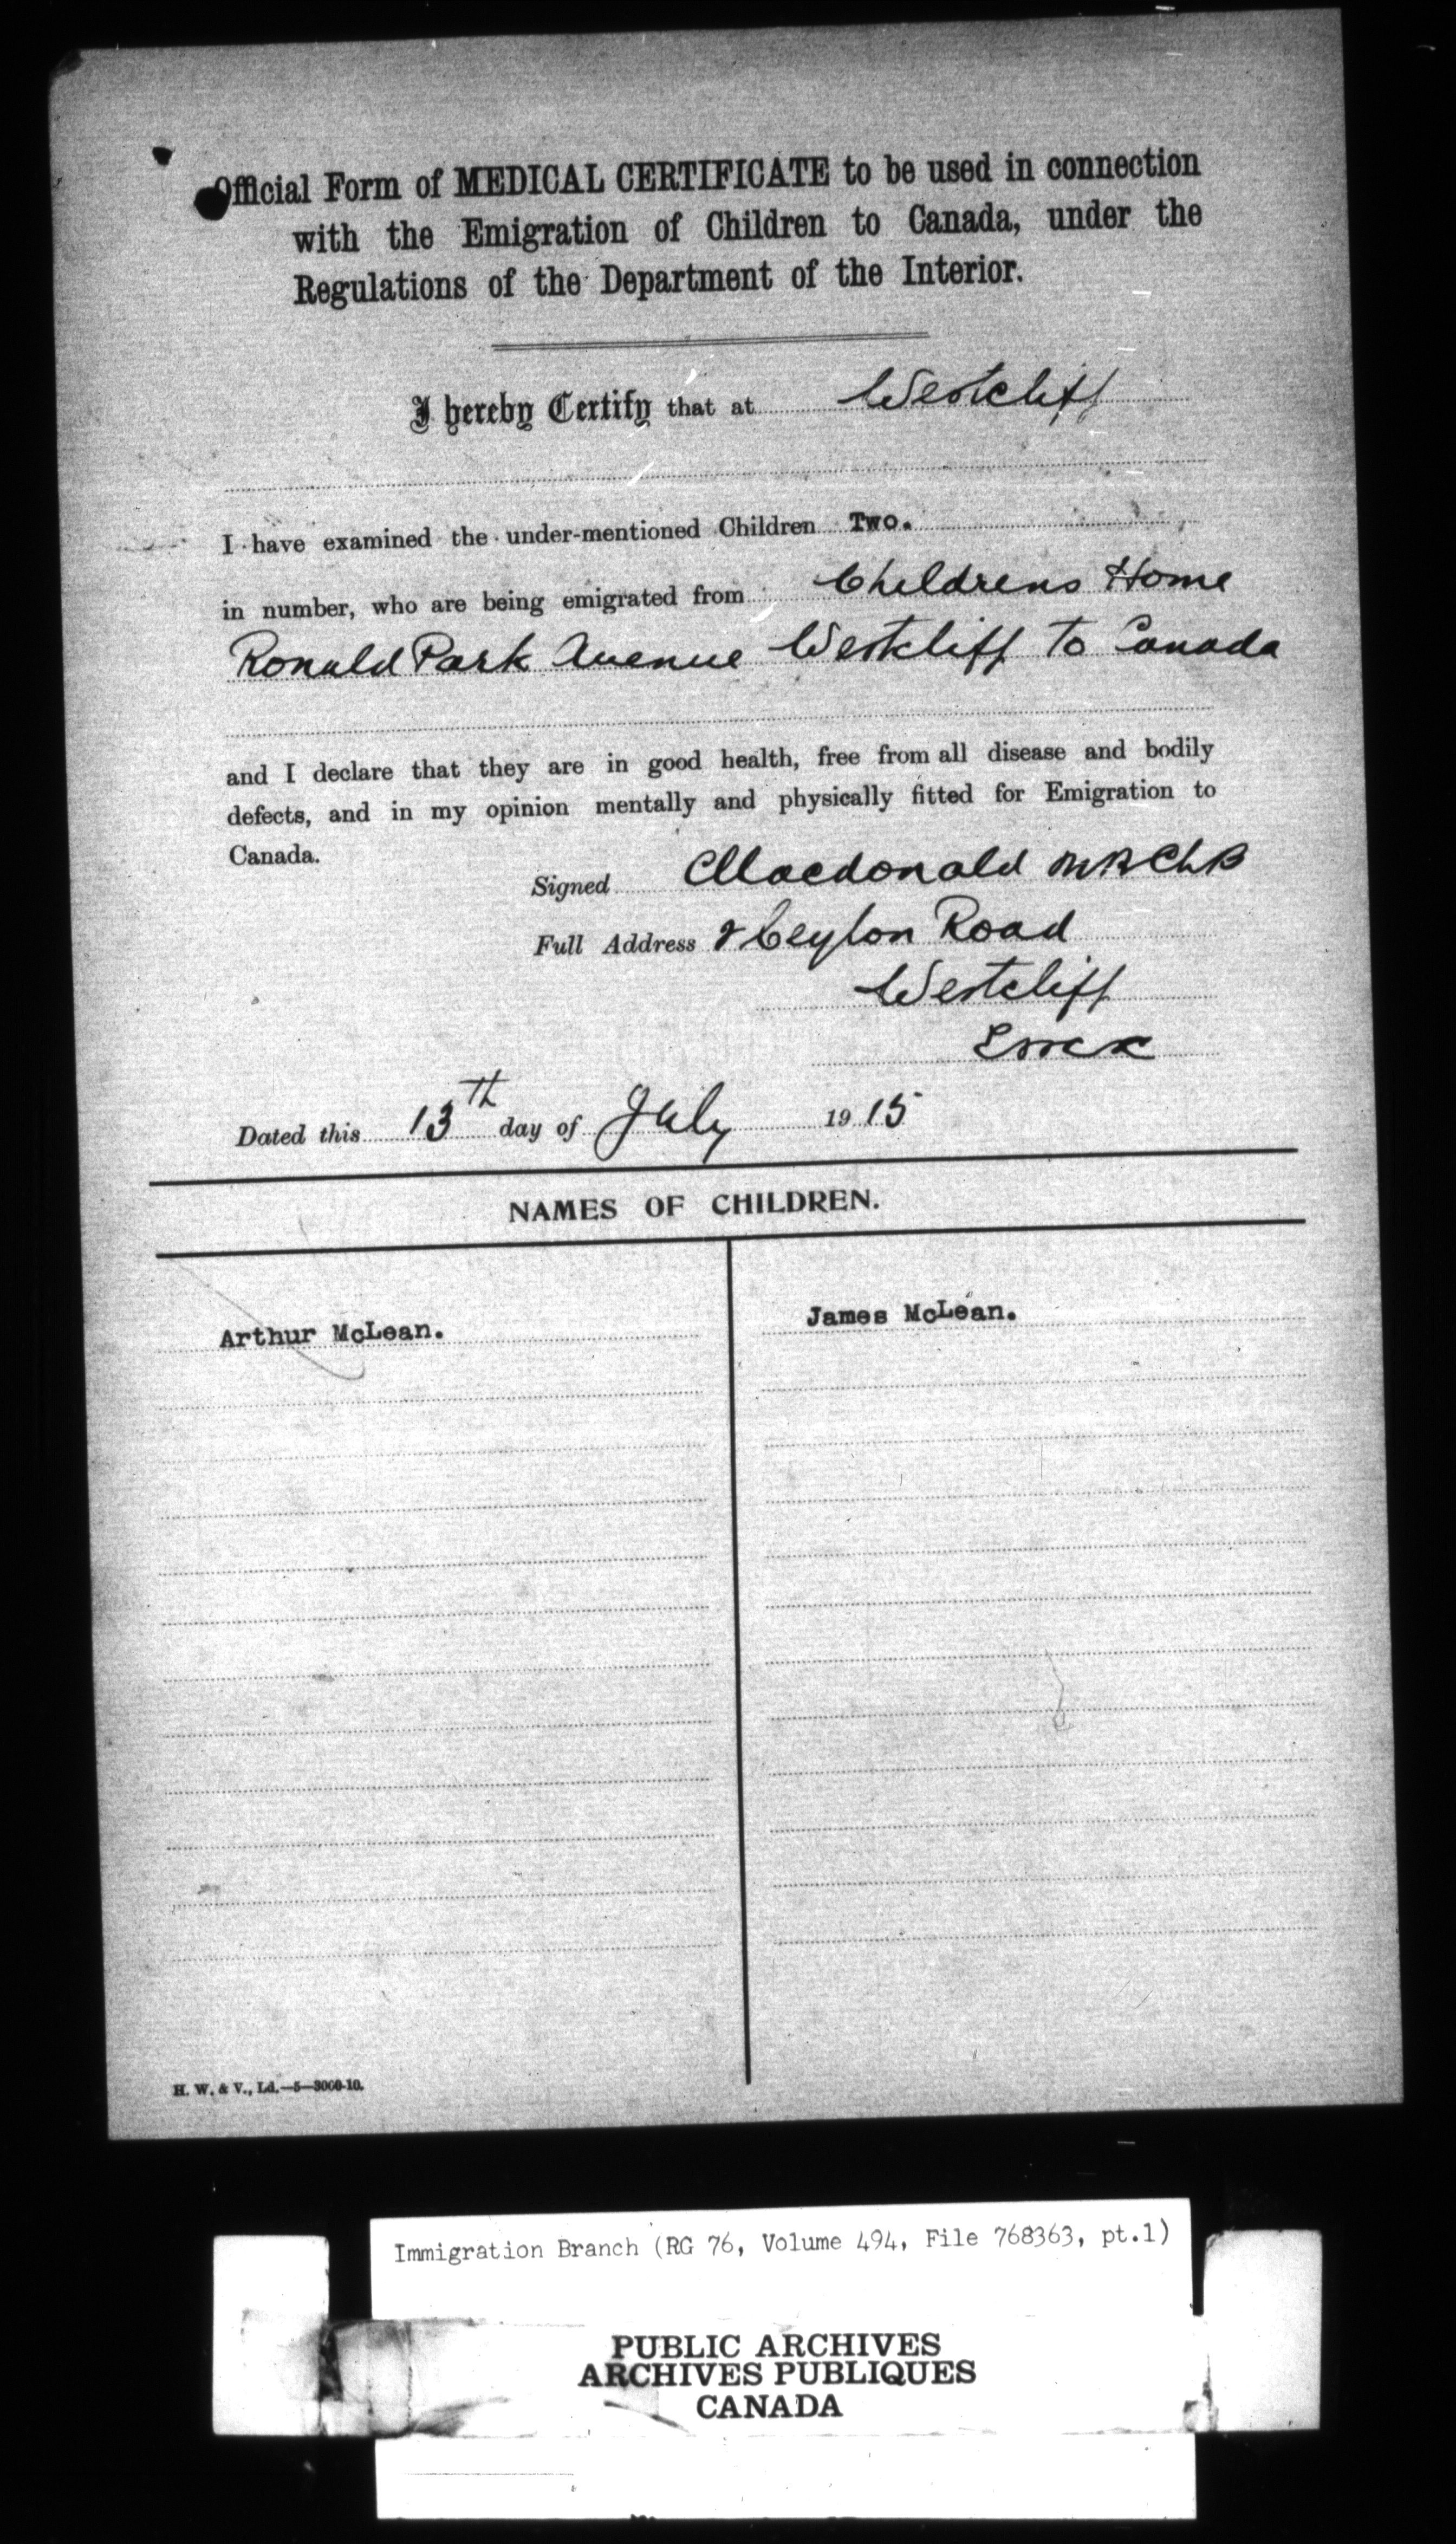 Official Form of MEDICAL CERTIFICATE to be used in connection
with the Emigration of Children to Canada, under the
Regulations of the Department of the Interior.
I hereby Certify that at Westcliff
I have examined the under-mentioned Children Two.
in number, who are being emigrated from Childrens Home
Ronald Park Avenue Westcliff To Canada
and I declare that they are in good health, free from all disease and bodily
defects, and in my opinion mentally and physically fitted for Emigration to
Canada.
Signed Macdonald MB ChB
Full Address Ceylon Road
Westcliff
Essex
Dated this 13th day of July 1915
NAMES OF CHILDREN.
Arthur McLean.
James McLean.
H. W. & V., Ld.—5—3000-10.
Immigration Branch (RG 76, Volume 494, File 768363, pt.1)
PUBLIC ARCHIVES
ARCHIVES PUBLIQUES
CANADA